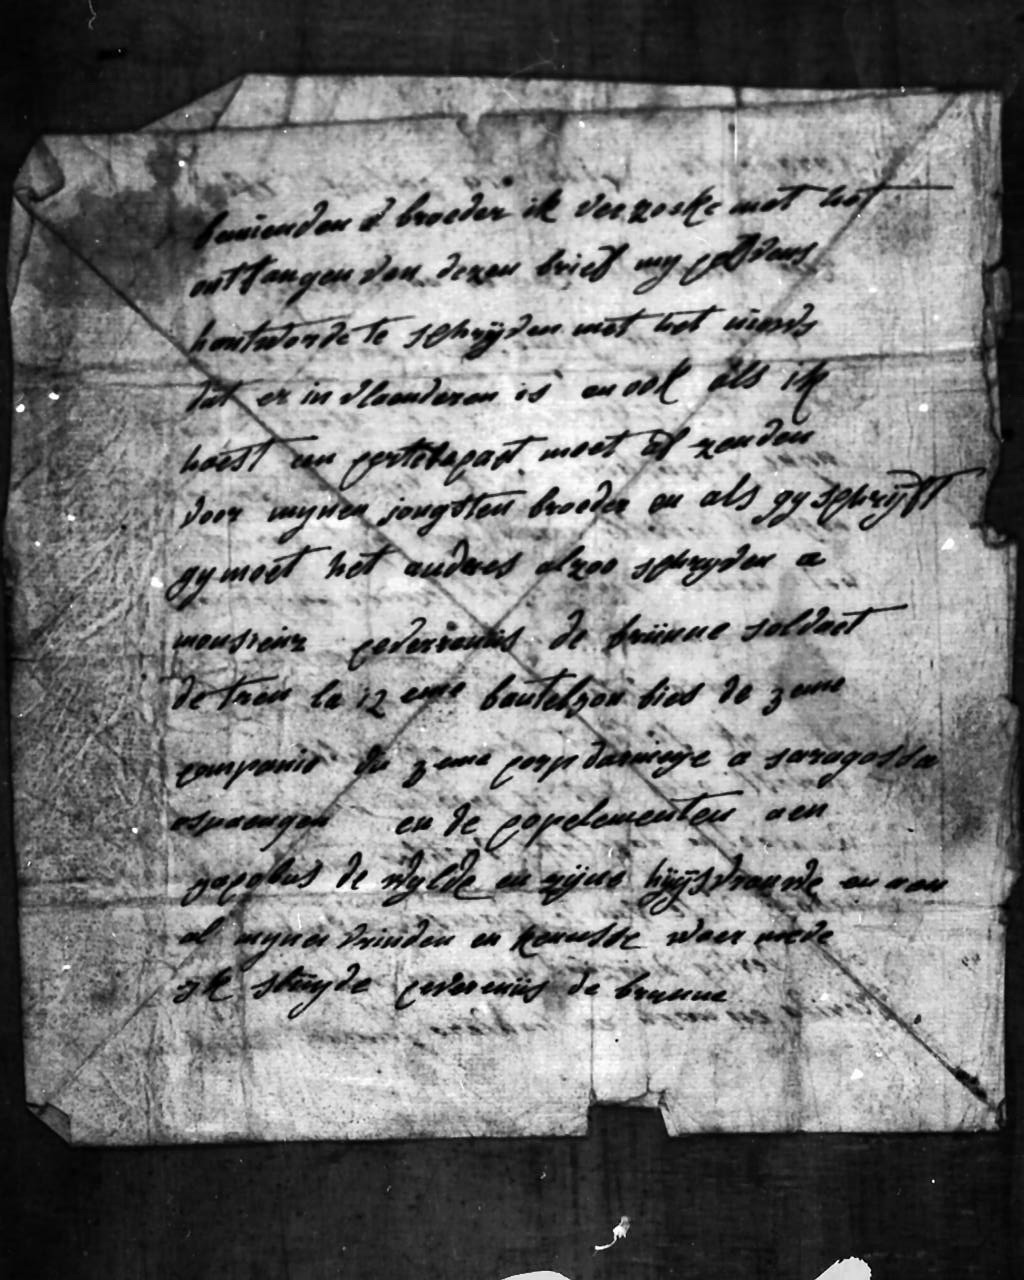 beminden d broeder ik verzoeke met het
ontfangen van dezen brief my
hantworde te schryven met het niews
dat er in vlaenderen is en ook als ik
haest een certefecaet moet af zenden
voor mynen jongsten broeder en als gy schryft
gy moet het anders alzoo schryven a
monsieur ceverenus de bruune soldaet
de tren la 12 eme bautelyon bies de 3 eme
companie du 3 eme corp darmeye a saragossa
espaengen en de copelementen aen
jacobus de wylde en zyne huysvrouwe en aen
al mynen vrinden en kenesse waer mede
yk sluyde ceverenus de bruune